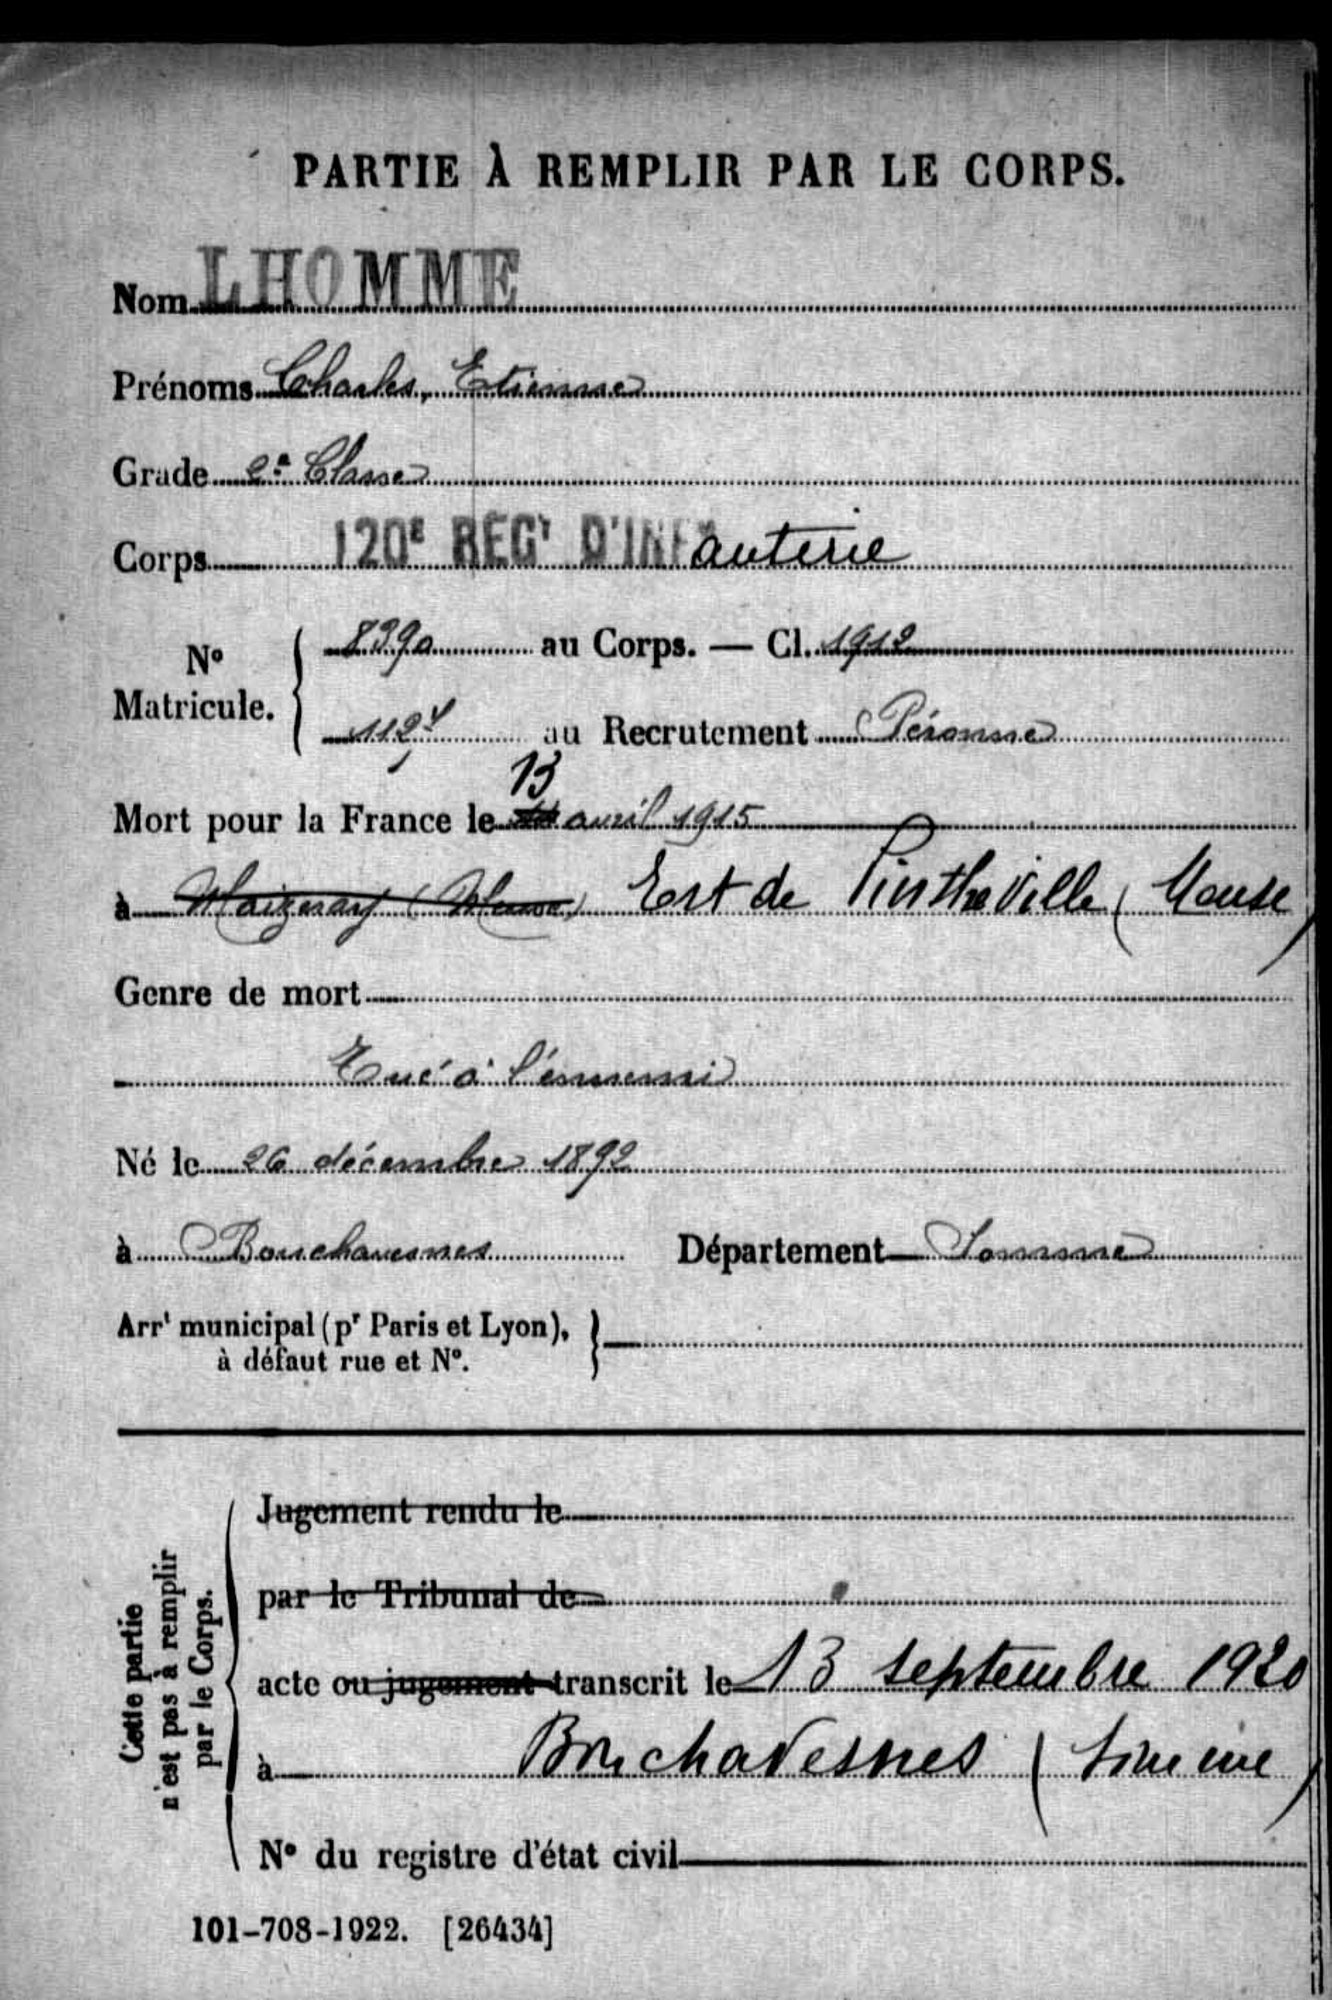 PARTIE À REMPLIR PAR LE CORPS.
Nom LHOMME
Prénoms Charles, Etienne
Grade 2e Classe
Corps 120E REGT D'INFanterie
No Matricule. { 8390 au Corps. — Cl. 1912
au Recrutement Péronne
13
Mort pour la France le avril 1915
à Maizeray (Meuse) Est de Pintheville (Meuse)
Genre de mort
Tué à l'ennemi
Né le 26 décembre 1892
à Bouchavesnes Département Somme
Arrt municipal (pr Paris et Lyon), }
à défaut rue et No.
Cette partie
n'est pas à remplir
par le Corps.
Jugement rendu le
par le Tribunal de
acte ou jugement transcrit le 13 septembre 1920
à Bouchavesnes (Somme)
No du registre d'état civil
101-708-1922. [26434]